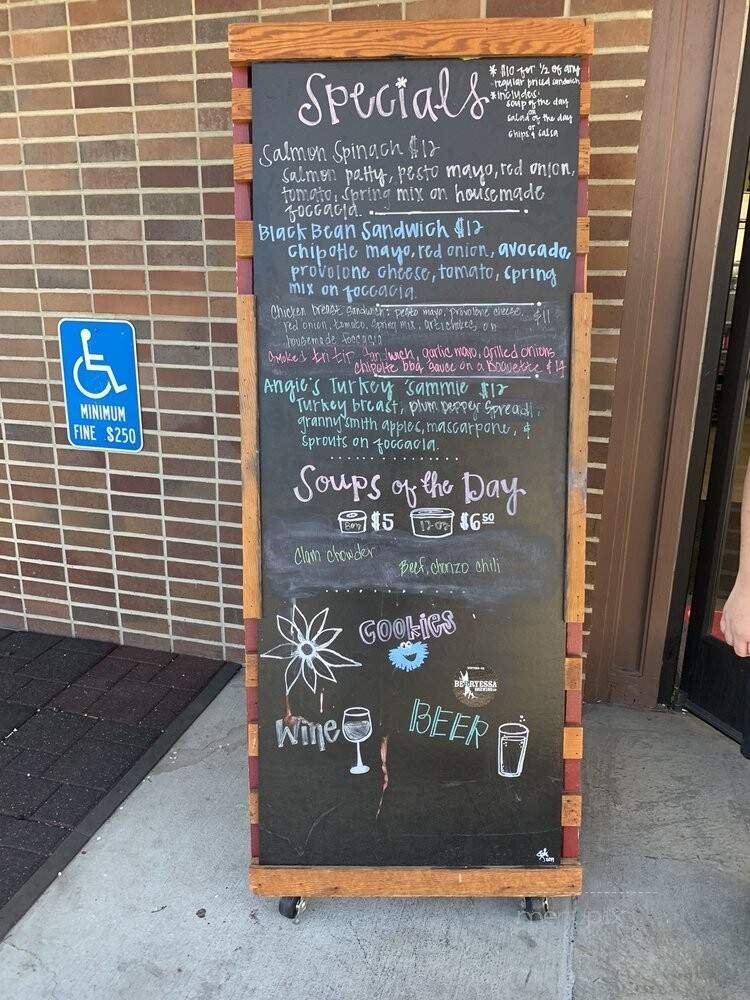 Specials
* $10 for 1/2 of any
regular priced sandwich
* includes:
soup of the day
or
salad of the day
or
chips & salsa
Salmon Spinach $12
salmon patty, pesto mayo, red onion,
tomato, spring mix on housemade
foccacia.
Black Bean Sandwich $12
chipotle mayo, red onion, avocado,
provolone cheese, tomato, spring
mix on foccacia.
Chicken breast sandwich: pesto mayo, provolone cheese, $11
red onion, tomato, spring mix, artichokes, on
housemade foccacia
Smoked tri tip sandwich, garlic mayo, grilled onions
chipotle bbq sauce on a Baguette $14
Angie's Turkey Sammie $12
Turkey breast, plum pepper spread,
granny smith apples, mascarpone, &
sprouts on foccacia.
Soups of the Day
8oz $5 12-oz $6.50
Clam chowder
Beef, chorizo chili
COOKIES
BERRYESSA
BREWING CO
Wine
BEER
MINIMUM
FINE $250
2019
menupix